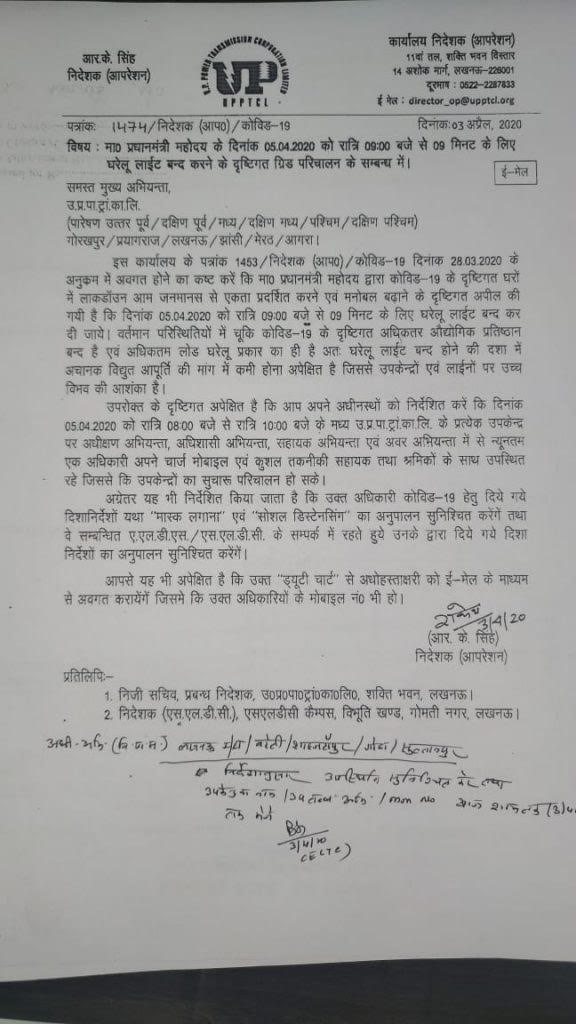 आर.के. सिंह
निदेशक (आपरेशन)
U.P. POWER TRANSMISSION CORPORATION LIMITED
UP
UPPTCL
कार्यालय निदेशक (आपरेशन)
11वां तल, शक्ति भवन विस्तार
14 अशोक मार्ग, लखनऊ-226001
दूरभाष : 0522-2287833
ई मेल : director_op@upptcl.org
पत्रांक: 1474/निदेशक (आप0)/कोविड-19 दिनांक: 03 अप्रैल, 2020
विषय : मा0 प्रधानमंत्री महोदय के दिनांक 05.04.2020 को रात्रि 09:00 बजे से 09 मिनट के लिए
घरेलू लाईट बन्द करने के दृष्टिगत ग्रिड परिचालन के सम्बन्ध में।
ई-मेल
समस्त मुख्य अभियन्ता,
उ.प्र.पा.ट्रां.का.लि.
(पारेषण उत्तर पूर्व/दक्षिण पूर्व/मध्य/दक्षिण मध्य/पश्चिम/दक्षिण पश्चिम)
गोरखपुर/प्रयागराज/लखनऊ/झांसी/मेरठ/आगरा।
इस कार्यालय के पत्रांक 1453/निदेशक (आप0)/कोविड-19 दिनांक 28.03.2020 के
अनुक्रम में अवगत होने का कष्ट करें कि मा0 प्रधानमंत्री महोदय द्वारा कोविड-19 के दृष्टिगत घरों
में लाकडॉउन आम जनमानस से एकता प्रदर्शित करने एवं मनोबल बढ़ाने के दृष्टिगत अपील की
गयी है कि दिनांक 05.04.2020 को रात्रि 09:00 बजे से 09 मिनट के लिए घरेलू लाईट बन्द कर
दी जाये। वर्तमान परिस्थितियों में चूकि कोविड-19 के दृष्टिगत अधिकतर औद्योगिक प्रतिष्ठान
बन्द है एवं अधिकतम लोड घरेलू प्रकार का ही है अतः घरेलू लाईट बन्द होने की दशा में
अचानक विद्युत आपूर्ति की मांग में कमी होना अपेक्षित है जिससे उपकेन्द्रों एवं लाईनों पर उच्च
विभव की आशंका है।
उपरोक्त के दृष्टिगत अपेक्षित है कि आप अपने अधीनस्थों को निर्देशित करें कि दिनांक
05.04.2020 को रात्रि 08:00 बजे से रात्रि 10:00 बजे के मध्य उ.प्र.पा.ट्रां.का.लि. के प्रत्येक उपकेन्द्र
पर अधीक्षण अभियन्ता, अधिशासी अभियन्ता, सहायक अभियन्ता एवं अवर अभियन्ता में से न्यूनतम
एक अधिकारी अपने चार्ज मोबाइल एवं कुशल तकनीकी सहायक तथा श्रमिकों के साथ उपस्थित
रहे जिससे कि उपकेन्द्रों का सुचारू परिचालन हो सके।
अग्रेतर यह भी निर्देशित किया जाता है कि उक्त अधिकारी कोविड-19 हेतु दिये गये
दिशानिर्देशों यथा "मास्क लगाना" एवं "सोशल डिस्टेनसिंग" का अनुपालन सुनिश्चित करेंगें तथा
वे सम्बन्धित ए.एल.डी.एस./एस.एल.डी.सी. के सम्पर्क में रहते हुये उनके द्वारा दिये गये दिशा
निर्देशों का अनुपालन सुनिश्चित करेंगें।
आपसे यह भी अपेक्षित है कि उक्त "ड्यूटी चार्ट" से अधोहस्ताक्षरी को ई-मेल के माध्यम
से अवगत करायेंगें जिसमे कि उक्त अधिकारियों के मोबाइल नं0 भी हो।
3/4/20
(आर. के. सिंह)
निदेशक (आपरेशन)
प्रतिलिपिः-
1. निजी सचिव, प्रबन्ध निदेशक, उ0प्र0पा0ट्रां0का0लि0, शक्ति भवन, लखनऊ।
2. निदेशक (एस.एल.डी.सी.), एसएलडीसी कैम्पस, विभूति खण्ड, गोमती नगर, लखनऊ।
लखनऊ /बरेली/शाहजहाँपुर/गोंडा/सुल्तानपुर
निर्देशानुसार उपस्थिति सुनिश्चित करें तथा
उपकेन्द्र का नाम / / mob No आज शाम तक (3/4
3/4/20